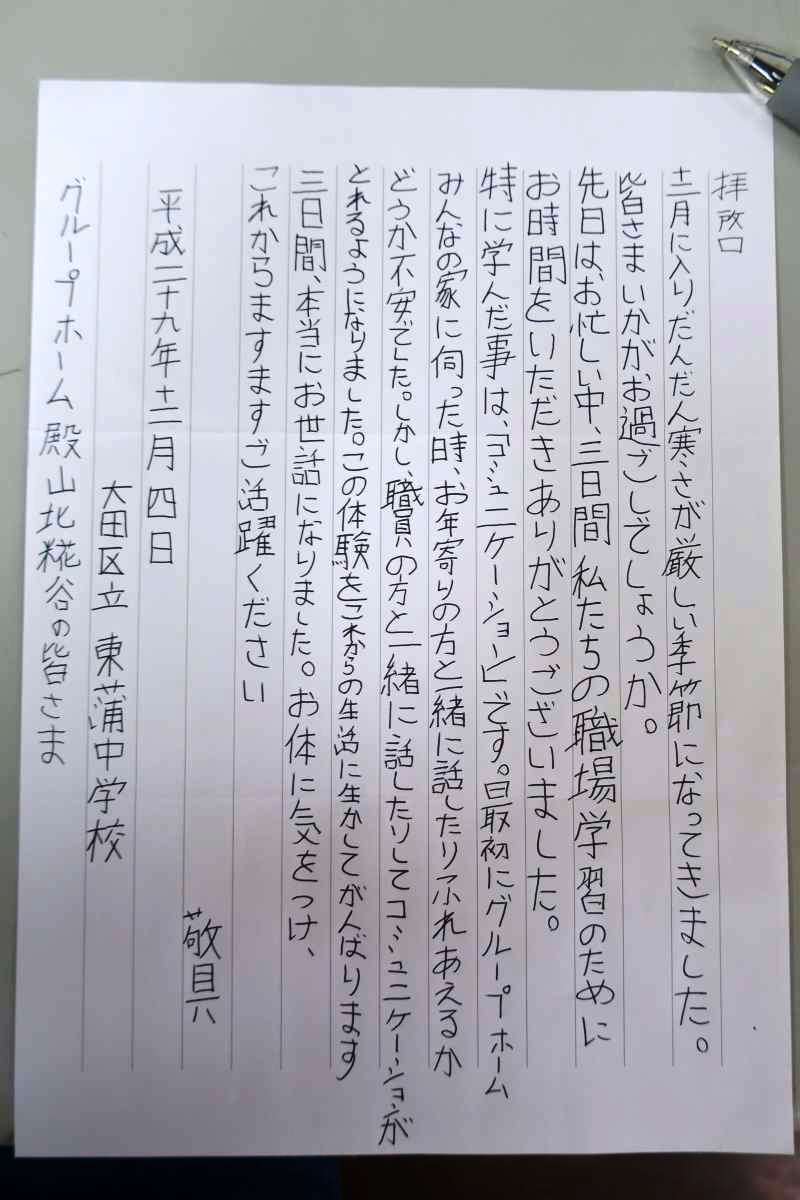 拝啓
十二月に入りだんだん寒さが厳しい季節になってきました。
皆さまいかがお過ごしでしょうか。
先日は、お忙しい中、三日間私たちの職場学習のために
お時間をいただきありがとうございました。
特に学んだ事は、「コミュニケーション」です。最初にグループホーム
みんなの家に伺った時、お年寄りの方と一緒に話したりふれあえるか
どうか不安でした。しかし、職員の方と一緒に話したりしてコミュニケーションが
とれるようになりました。この体験をこれからの生活に生かしてがんばります
三日間、本当にお世話になりました。お体に気をつけ、
これからますますご活躍ください
敬具
平成二十九年十二月四日
大田区立 東蒲中学校
グループホーム殿山北糀谷の皆さま